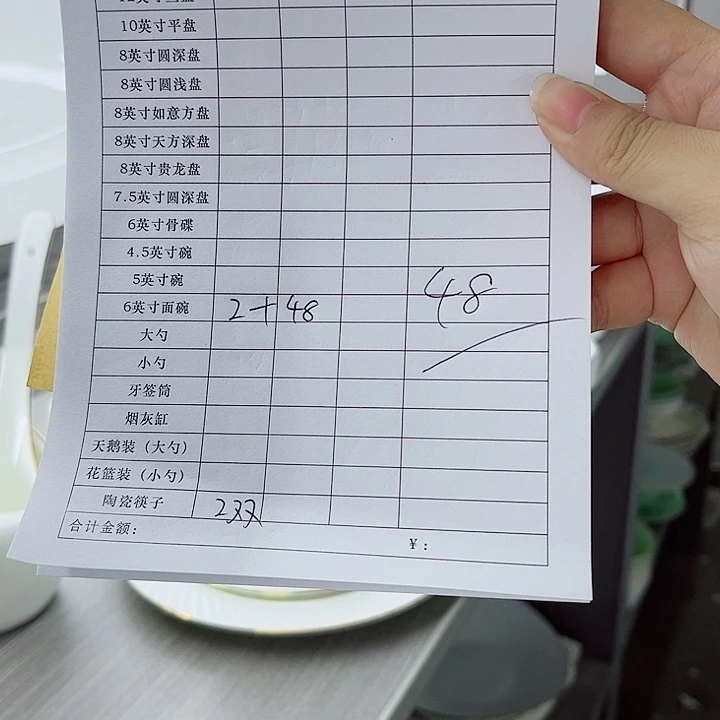 10英寸平盘
8英寸圆深盘
8英寸圆浅盘
8英寸如意方盘
8英寸天方深盘
8英寸贵龙盘
7.5英寸圆深盘
6英寸骨碟
4.5英寸碗
5英寸碗
6英寸面碗 2个 48 48
大勺
小勺
牙签筒
烟灰缸
天鹅装（大勺）
花篮装（小勺）
陶瓷筷子 2双
合计金额： ￥：